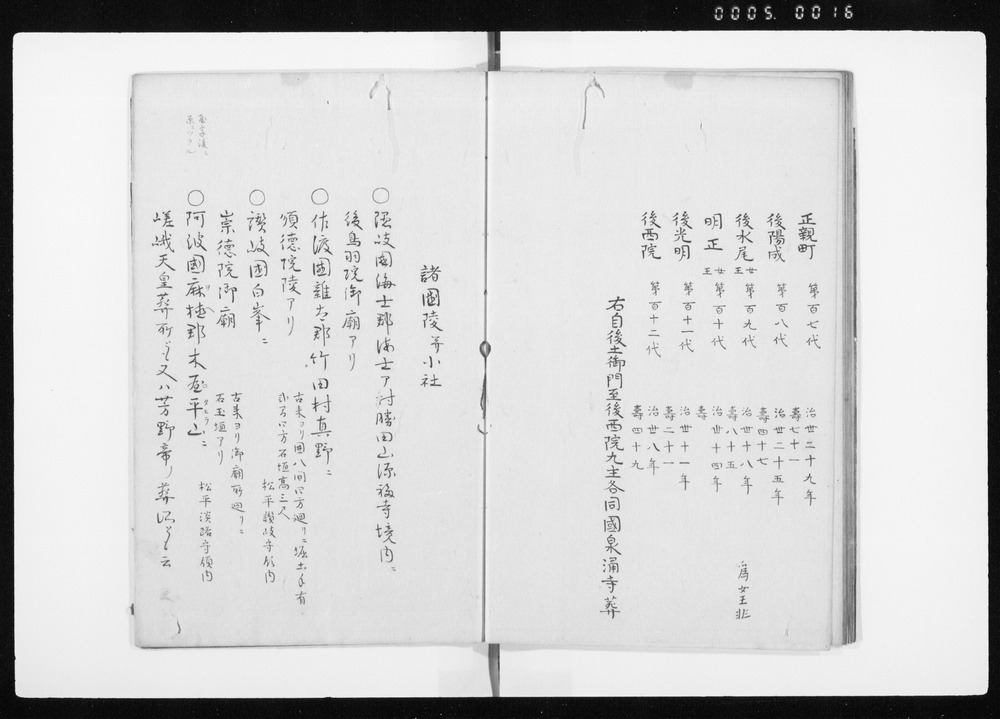 0005.0016
正親町 第百七代 治世二十九年
壽七十一
後陽成 第百八代 治世二十五年
壽四十七
後水尾 第百九代 治世十八年
壽八十五
為女王非
明正 女王 第百十代 治世十四年
壽
後光明 第百十一代 治世十一年
壽二十一
後西院 第百十二代 治世八年
壽四十九
右自後土御門至後西院九主各同國泉涌寺葬
諸國陵并小社
○隠岐國海士郡海士ア村勝田山源福寺境内ニ
後鳥羽院御廟アリ
○佐渡國雜太郡竹田村真野ニ
順德院陵アリ
古来ヨリ四八間四方廻リニ堀土手有
四方石垣高三尺
○讃岐國白峯ニ
松平讃岐守領内
崇德院御廟
古来ヨリ御廟所廻リニ
石玉垣アリ
○阿波國麻植郡木屋平山ニ
松平淡路守領内
嵯峨天皇葬所ト云又ハ芳野帝ノ葬所ト云